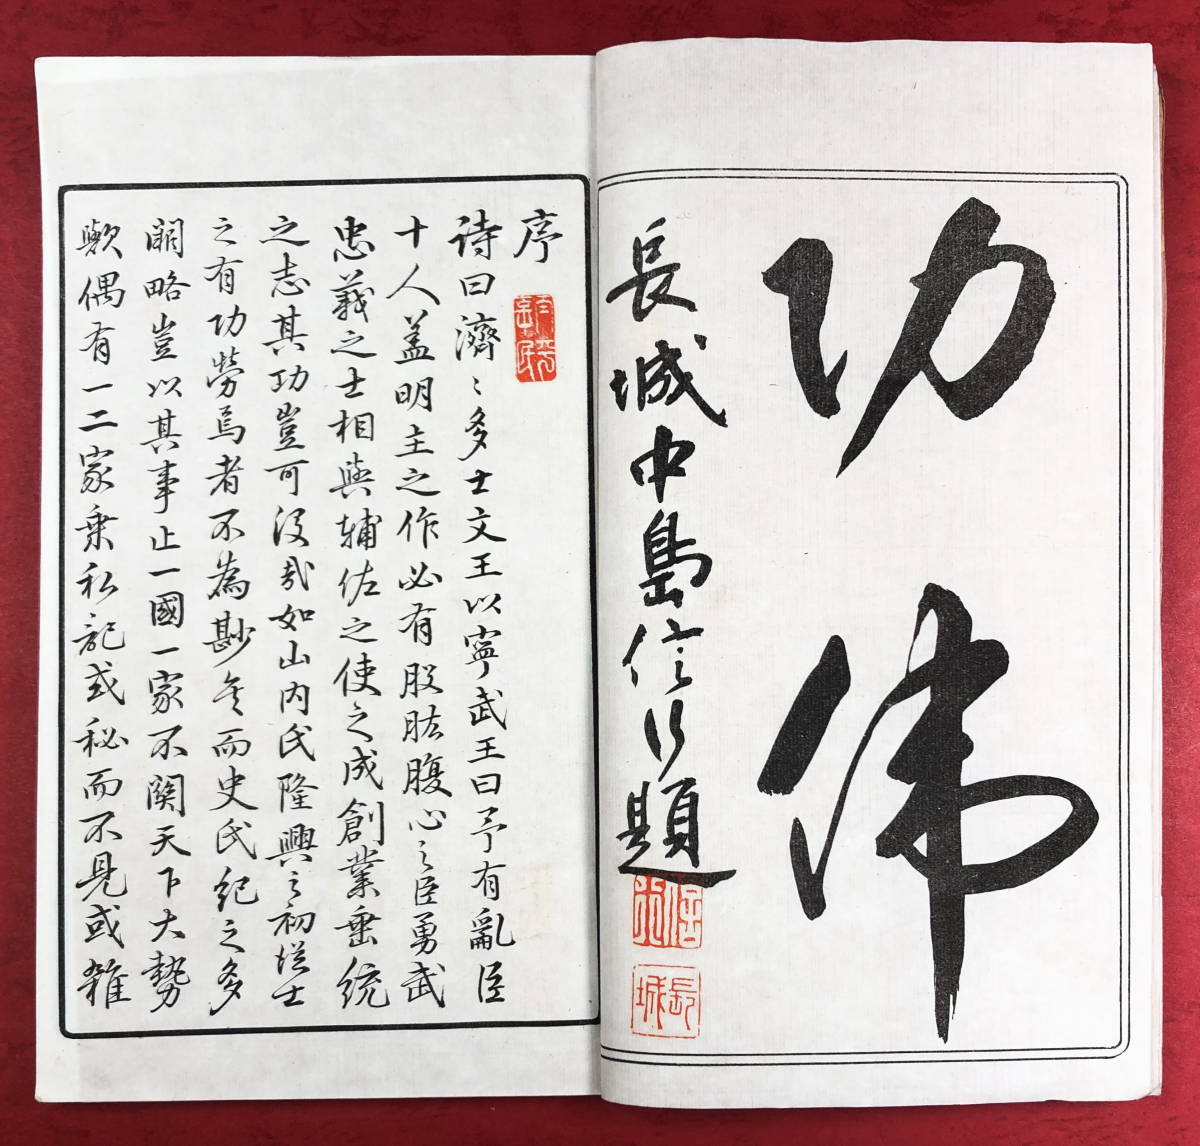 功偉
長城中島信行題
信行
長城
序
詩曰濟〻多士文王以寧武王曰予有亂臣
十人蓋明主之作必有股肱腹心之臣勇武
忠義之士相與輔佐之使之成創業垂統
之志其功豈可没哉如山内氏隆興之初從士
之有功勞焉者不為尠矣而史氏紀之多
闊略豈以其事止一國一家不関天下大勢
歟偶有一二家乗私記或秘而不見或雜